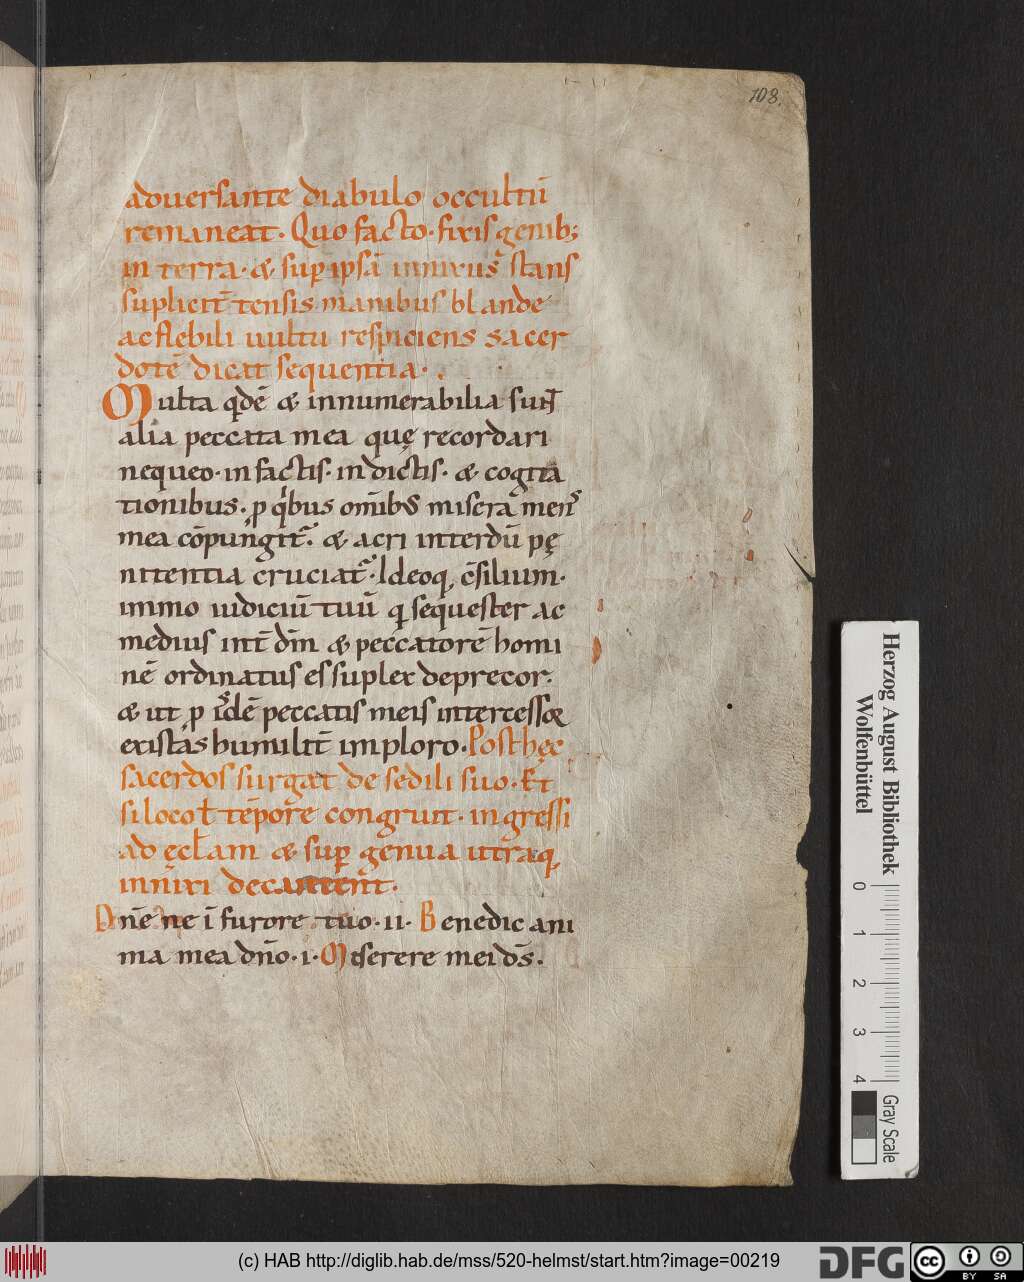 108.
aduersante diabulo occultū
remaneat. Quo facto. fixis genib;
in terra. & sup ipsā innixus stans
suplicit̄ tensis manibus blande
ac flebili uultu respiciens sacer
dotē dicat sequentia.
Multa qdē & innumerabilia sunt
alia peccata mea quę recordari
nequeo. in factis. in dictis. & cogita
tionibus. p qbus om̄ibus misera mens
mea cōpungit. & acri interdū pę
nitentia cruciat. Ideoq, c̄silium.
immo iudiciū tuū q sequester ac
medius int̄ dm̄ & peccatorē homi
nē ordinatus es suplex deprecor.
& ut p idē peccatis meis intercessor
existas humilit̄ imploro. Post hęc
sacerdos surgat de sedili suo. Et
si loco ł tēpore congruit. ingressi
ad ęcłam & sup genua utraq,
innixi decantent.
Dn̄e ne ī furore tuo. ii. Benedic ani
ma mea dn̄o. i. Miserere mei ds̄.
Herzog August Bibliothek
Wolfenbüttel
0 1 2 3 4
Gray Scale
(c) HAB http://diglib.hab.de/mss/520-helmst/start.htm?image=00219
DFG
cc BY SA